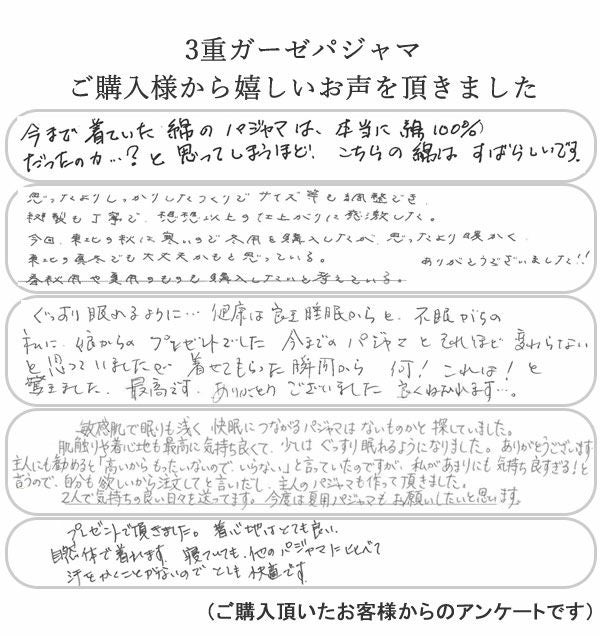 3重ガーゼパジャマ
ご購入様から嬉しいお声を頂きました
今まで着ていた綿のパジャマは、本当に綿100%
だったのカ…?と思ってしまうほど、こちらの綿は すばらしいです。
思ったよりしっかりしたつくりで サイズ等も調整でき、
縫製も丁寧で、想想以上の仕上がりに感激した。
今回、東北の秋は寒いので冬用を購入したが、思ったより暖かく、
東北の真冬でも大丈夫かもと思っている。 ありがとうございました!!
春秋用や夏用のものも購入したいと考えている。
ぐっすり眠れるように… 健康は良き睡眠からと、不眠がちの
私に、娘からの プレゼントでした 今までの パジャマ と それほど 変わらない
と思っていましたが 着せてもらった瞬間から 何! これは! と
驚きました。最高です。ありがとう ございました 良くねむれます…。
敏感肌で眠りも浅く 快眠につながるパジャマは ないものかと 探していました。
肌触りや着心地も最高に気持ち良くて、少しは ぐっすり眠れるようになりました。ありがとうございます
主人にも勧めると「高いから もったいないので、いらない」と言っていたのですが、私があまりにも気持ち良すぎる!と
言うので、自分も欲しいから注文してと言いだし、主人のパジャマも作って頂きました。
2人で気持ちの良い日々を送ってます。今度は夏用パジャマも お願いしたいと思います。
プレゼントで頂きました。着心地はとても良い、
自然体で着れます。寝ていても、他のパジャマにくらべて
汗をかくことがないので とても 快適です。
(ご購入頂いたお客様からのアンケートです)